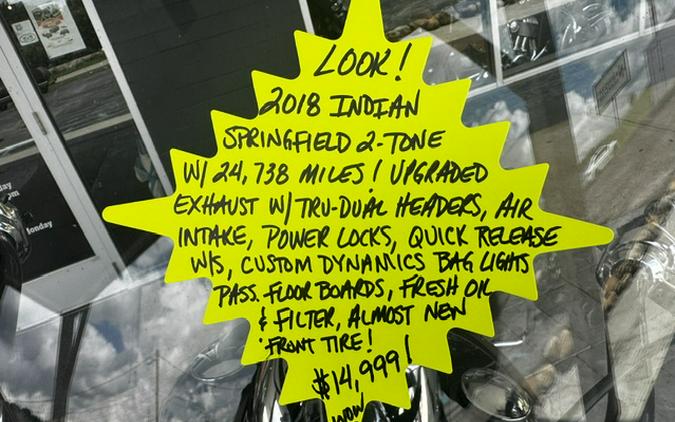 LOOK!
2018 INDIAN
SPRINGFIELD 2-TONE
W/ 24,738 MILES! UPGRADED
EXHAUST W/ TRU-DUAL HEADERS, AIR
INTAKE, POWER LOCKS, QUICK RELEASE
W/S, CUSTOM DYNAMICS BAG LIGHTS
PASS. FLOOR BOARDS, FRESH OIL
& FILTER, ALMOST NEW
FRONT TIRE!
$14,999!
WOW
onday